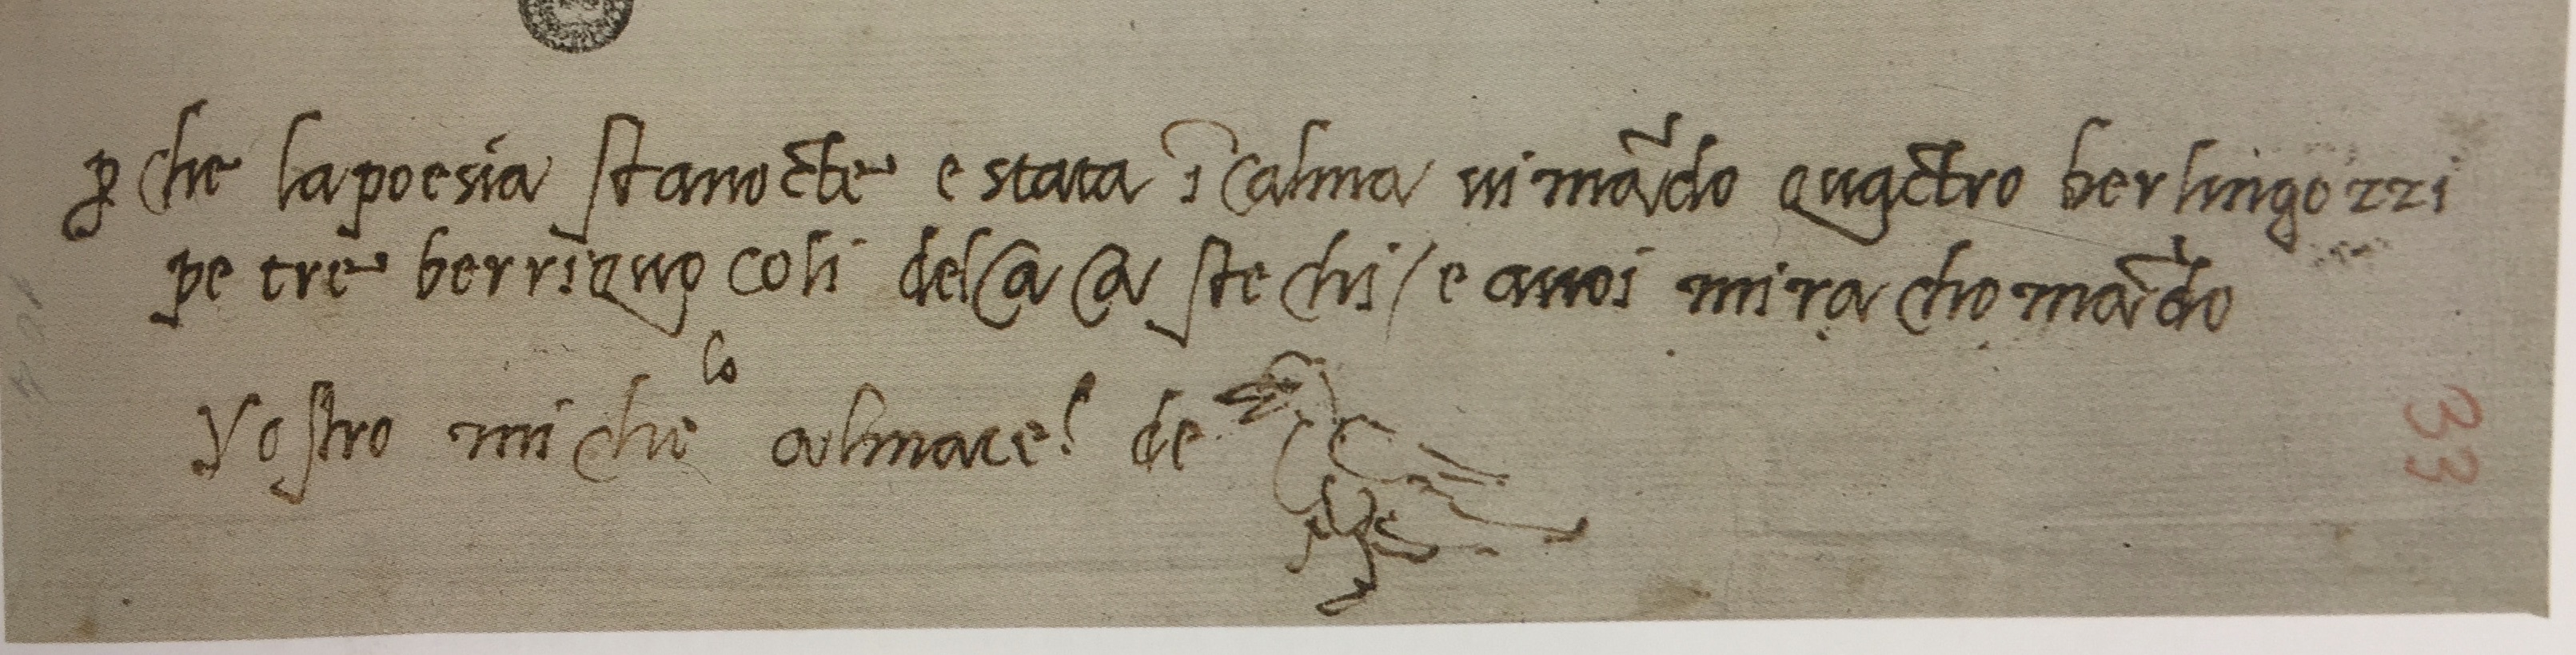 p̱che la poesia stanocte e stata ī calma vi mādo quactro berlingozzi
pe tre berriquocoli del ca ca stechi / e avoi mi ra chomādo
Vostro michelo almacel de
33